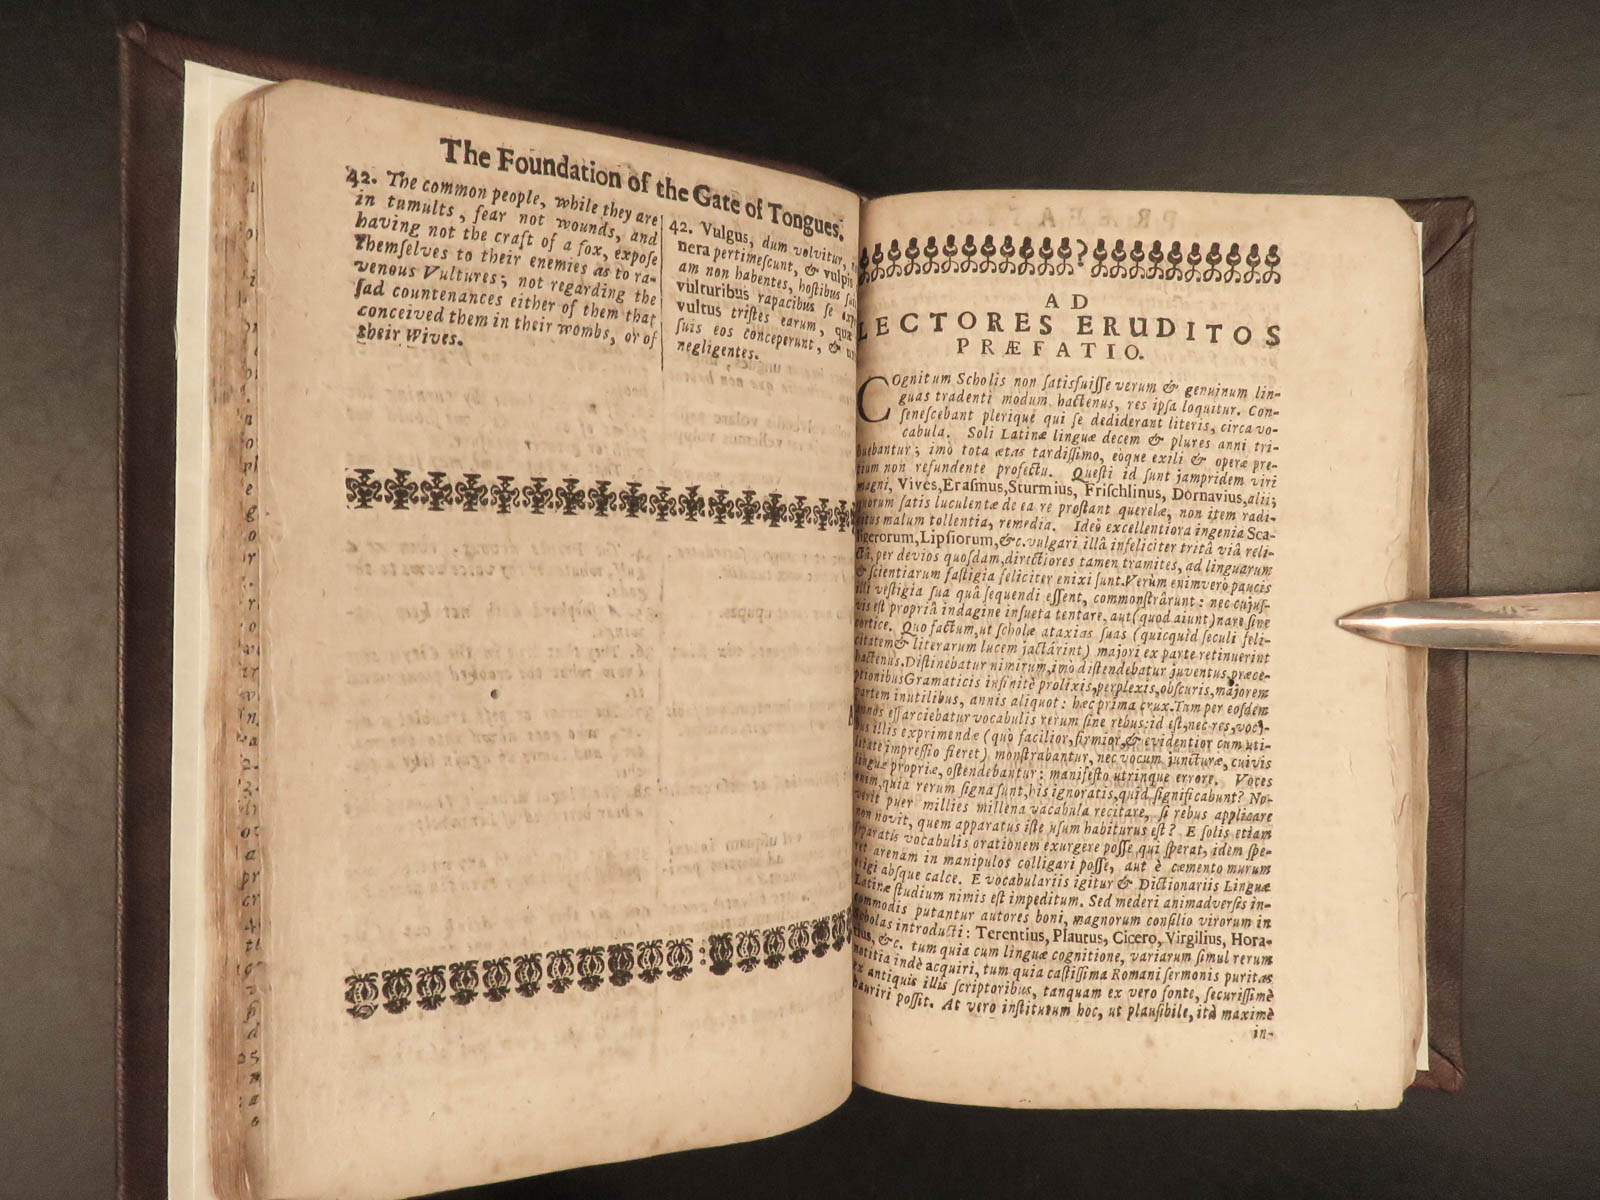 The Foundation of the Gate of Tongues.
42. The common people, while they are
in tumults, fear not wounds, and
having not the craft of a fox, expose
themſelves to their enemies as to ra-
venous Vultures; not regarding the
ſad countenances either of them that
conceived them in their wombs, or of
their Wives.
42. Vulgus, dum volvitur,
nera pertimeſcunt, & vulpi
am non habentes, hoſtibus
vulturibus rapacibus ſe
vultus triſtes earum, quæ
ſuis eos conceperunt, &
negligentes.
AD
LECTORES ERUDITOS
PRÆFATIO.
COgnitum Scholis non ſatisfuiſſe verum & genuinum lin-
guas tradenti modum hactenus, res ipſa loquitur. Con-
ſeneſcebant plerique qui ſe dediderant literis, circa vo-
cabula. Soli Latinæ linguæ decem & plures anni tri-
buebantur; imò tota ætas tardiſſimo, eòque exili & operæ pre-
tium non refundente profectu. Queſti id ſunt jampridem viri
magni, Vives, Eraſmus, Sturmius, Friſchlinus, Dornavius, alii;
quorum ſatis luculentæ de ea re proſtant querelæ, non item radi-
citus malum tollentia, remedia. Ideò excellentiora ingenia Sca-
ligerorum, Lipſiorum, &c. vulgari illâ infeliciter tritâ viâ reli-
ctâ, per devios quoſdam, directiores tamen tramites, ad linguarum
& ſcientiarum faſtigia feliciter enixi ſunt. Verùm enimverò paucis
illi veſtigia ſua quâ ſequendi eſſent, commonſtrârunt: nec cujuſ-
vis eſt propriâ indagine inſueta tentare, aut (quod aiunt) nare ſine
cortice. Quo factum, ut ſcholæ ataxias ſuas (quicquid ſeculi feli-
citatem & literarum lucem jactârint) majori ex parte retinuerint
hactenus. Diſtinebatur nimirum, imò diſtendebatur juventus, præce-
ptionibus Grammaticis infinitè prolixis, perplexis, obſcuris, majorem
partem inutilibus, annis aliquot: hæc prima crux. Tum per eoſdem
annos effarciebatur vocabulis rerum ſine rebus: id eſt, nec res, voci-
bus illis exprimendæ (quò facilior, firmior, & evidentior cum uti-
litate impreſſio fieret) monſtrabantur, nec vocum juncturæ, cuivis
linguæ propriæ, oſtendebantur: manifeſto utrinque errore. Voces
enim, quia rerum ſigna ſunt, his ignoratis, quid ſignificabunt? No-
verit puer millies millena vacabula recitare, ſi rebus applicare
non novit, quem apparatus iſte uſum habiturus eſt? E ſolis etiam
ſeparatis vocabulis orationem exurgere poſſe qui ſperat, idem ſpe-
ret arenam in manipulos colligari poſſe, aut è cæmento murum
erigi abſque calce. E vocabulariis igitur & Dictionariis Linguæ
Latinæ ſtudium nimis eſt impeditum. Sed mederi animadverſis in-
commodis putantur autores boni, magnorum conſilio virorum in
ſcholas introducti: Terentius, Plautus, Cicero, Virgilius, Hora-
tius, &c. tum quia cum linguæ cognitione, variarum ſimul rerum
notitia indè acquiri, tum quia caſtiſſima Romani ſermonis puritas
ex antiquis illis ſcriptoribus, tanquam ex vero fonte, ſecuriſſimè
hauriri poſſit. At vero inſtitutum hoc, ut plauſibile, ità maximè
in-